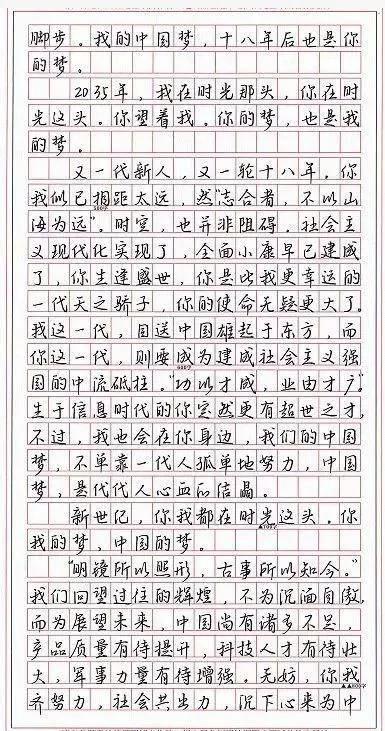 脚步。我的中国梦，十八年后也是你
的梦。
2035年，我在时光那头，你在时
光这头。你望着我。你的梦，也是我
的梦。
又一代新人，又一轮十八年。你
我似已相距太远，然“志合者，不以山
海为远”。时空，也并非阻碍。社会主
义现代化实现了，全面小康早已建成
了，你生逢盛世，你是比我更幸运的
一代天之骄子，你的使命无疑更大了。
我这一代，目送中国雄起于东方，而
你这一代，则要成为建成社会主义强
国的中流砥柱。“功以才成，业由才广”。
生于信息时代的你定然更有超世之才，
不过，我也会在你身边，我们的中国
梦，不单靠一代人孤单地努力，中国
梦，是代代人心血的结晶。
新世纪，你我都在时光这头。你
我的梦，中国的梦。
“明镜所以照形，古事所以知今。”
我们回望过往的辉煌，不为沉湎自傲，
而为展望未来，中国尚有诸多不足，
产品质量有待提升，科技人才有待壮
大，军事力量有待增强。无妨，你我
齐努力，社会共出力，沉下心来为中